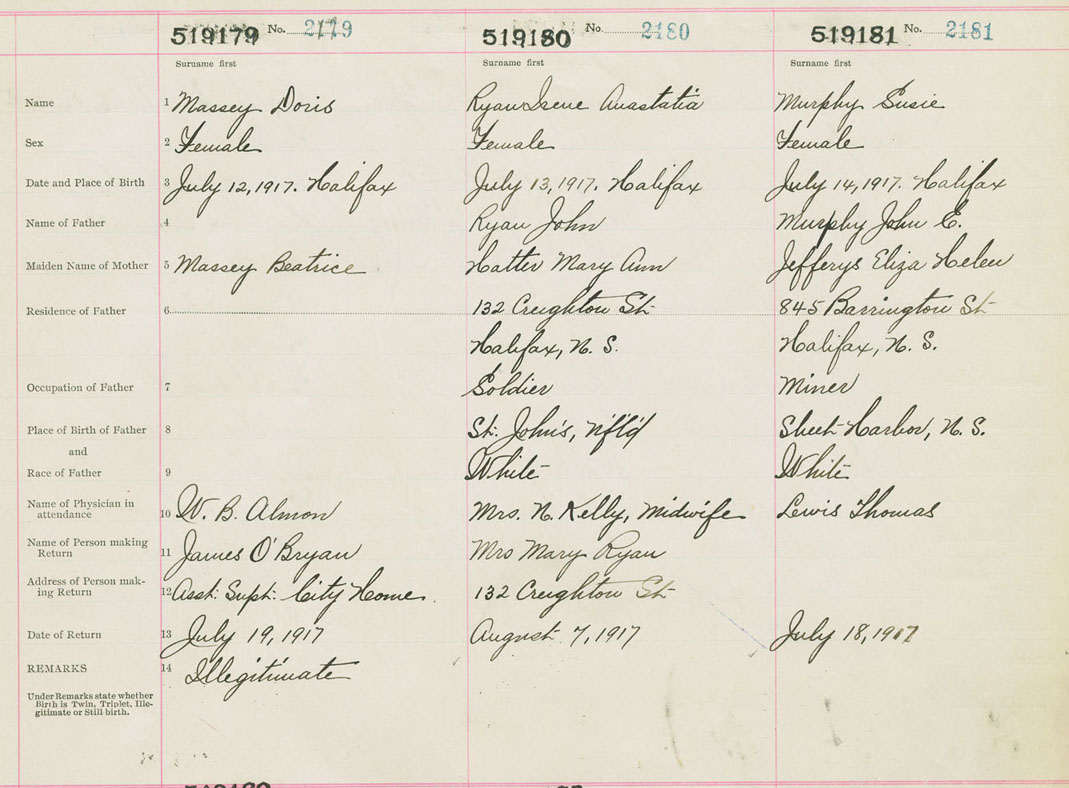 519179 No. 2179
519180 No. 2180
519181 No. 2181
Surname first
Surname first
Surname first
Name 1 Massey Doris
Ryan Irene Anastatia
Murphy Susie
Sex 2 Female
Female
Female
Date and Place of Birth 3 July 12, 1917. Halifax
July 13, 1917. Halifax
July 14, 1917. Halifax
Name of Father 4
Ryan John
Murphy John E.
Maiden Name of Mother 5 Massey Beatrice
Hatter Mary Ann
Jefferys Eliza Helen
Residence of Father 6
132 Creighton St.
845 Barrington St.
Halifax, N. S.
Halifax, N. S.
Occupation of Father 7
Soldier
Miner
Place of Birth of Father 8
St. John's, Nf'l'd
Sheet Harbor, N. S.
and
Race of Father 9
White
White
Name of Physician in
attendance 10 W. B. Almon
Mrs. N. Kelly, Midwife
Lewis Thomas
Name of Person making
Return 11 James O'Bryan
Mrs Mary Ryan
Address of Person mak-
ing Return 12 Asst. Supt. City Home.
132 Creighton St.
Date of Return 13 July 19, 1917
August 7, 1917
July 18, 1917
REMARKS 14 Illegitimate
Under Remarks state whether
Birth is Twin, Triplet, Ille-
gitimate or Still birth.